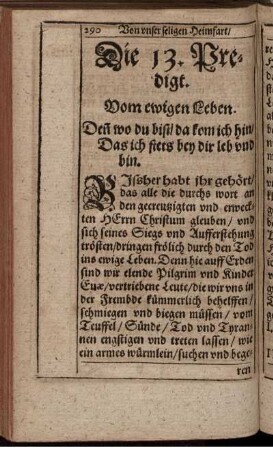 290 Von vnser seligen Heimfart/
Die 13. Pre-
digt.
Vom ewigen Leben.
Deñ wo du bist/ da kom ich hin/
Das ich stets bey dir leb vnd
bin.
BIßher habt jhr gehört/
das alle die durchs wort an
den gecreutzigten vnd erweck-
ten HErrn Christum gleuben/ vnd
sich seines Siegs vnd Aufferstehung
trösten/ dringen frölich durch den Tod
ins ewige Leben. Denn hie auff Erden
sind wir elende Pilgrim vnd Kinder
Euæ/ vertriebene Leute/ die wir vns in
der Frembde kümmerlich behelffen/
schmiegen vnd biegen müssen/ vom
Teuffel/ Sünde/ Tod vnd Tyran-
nen engstigen vnd treten lassen/ wie
ein armes würmlein/ suchen vnd bege-
ren